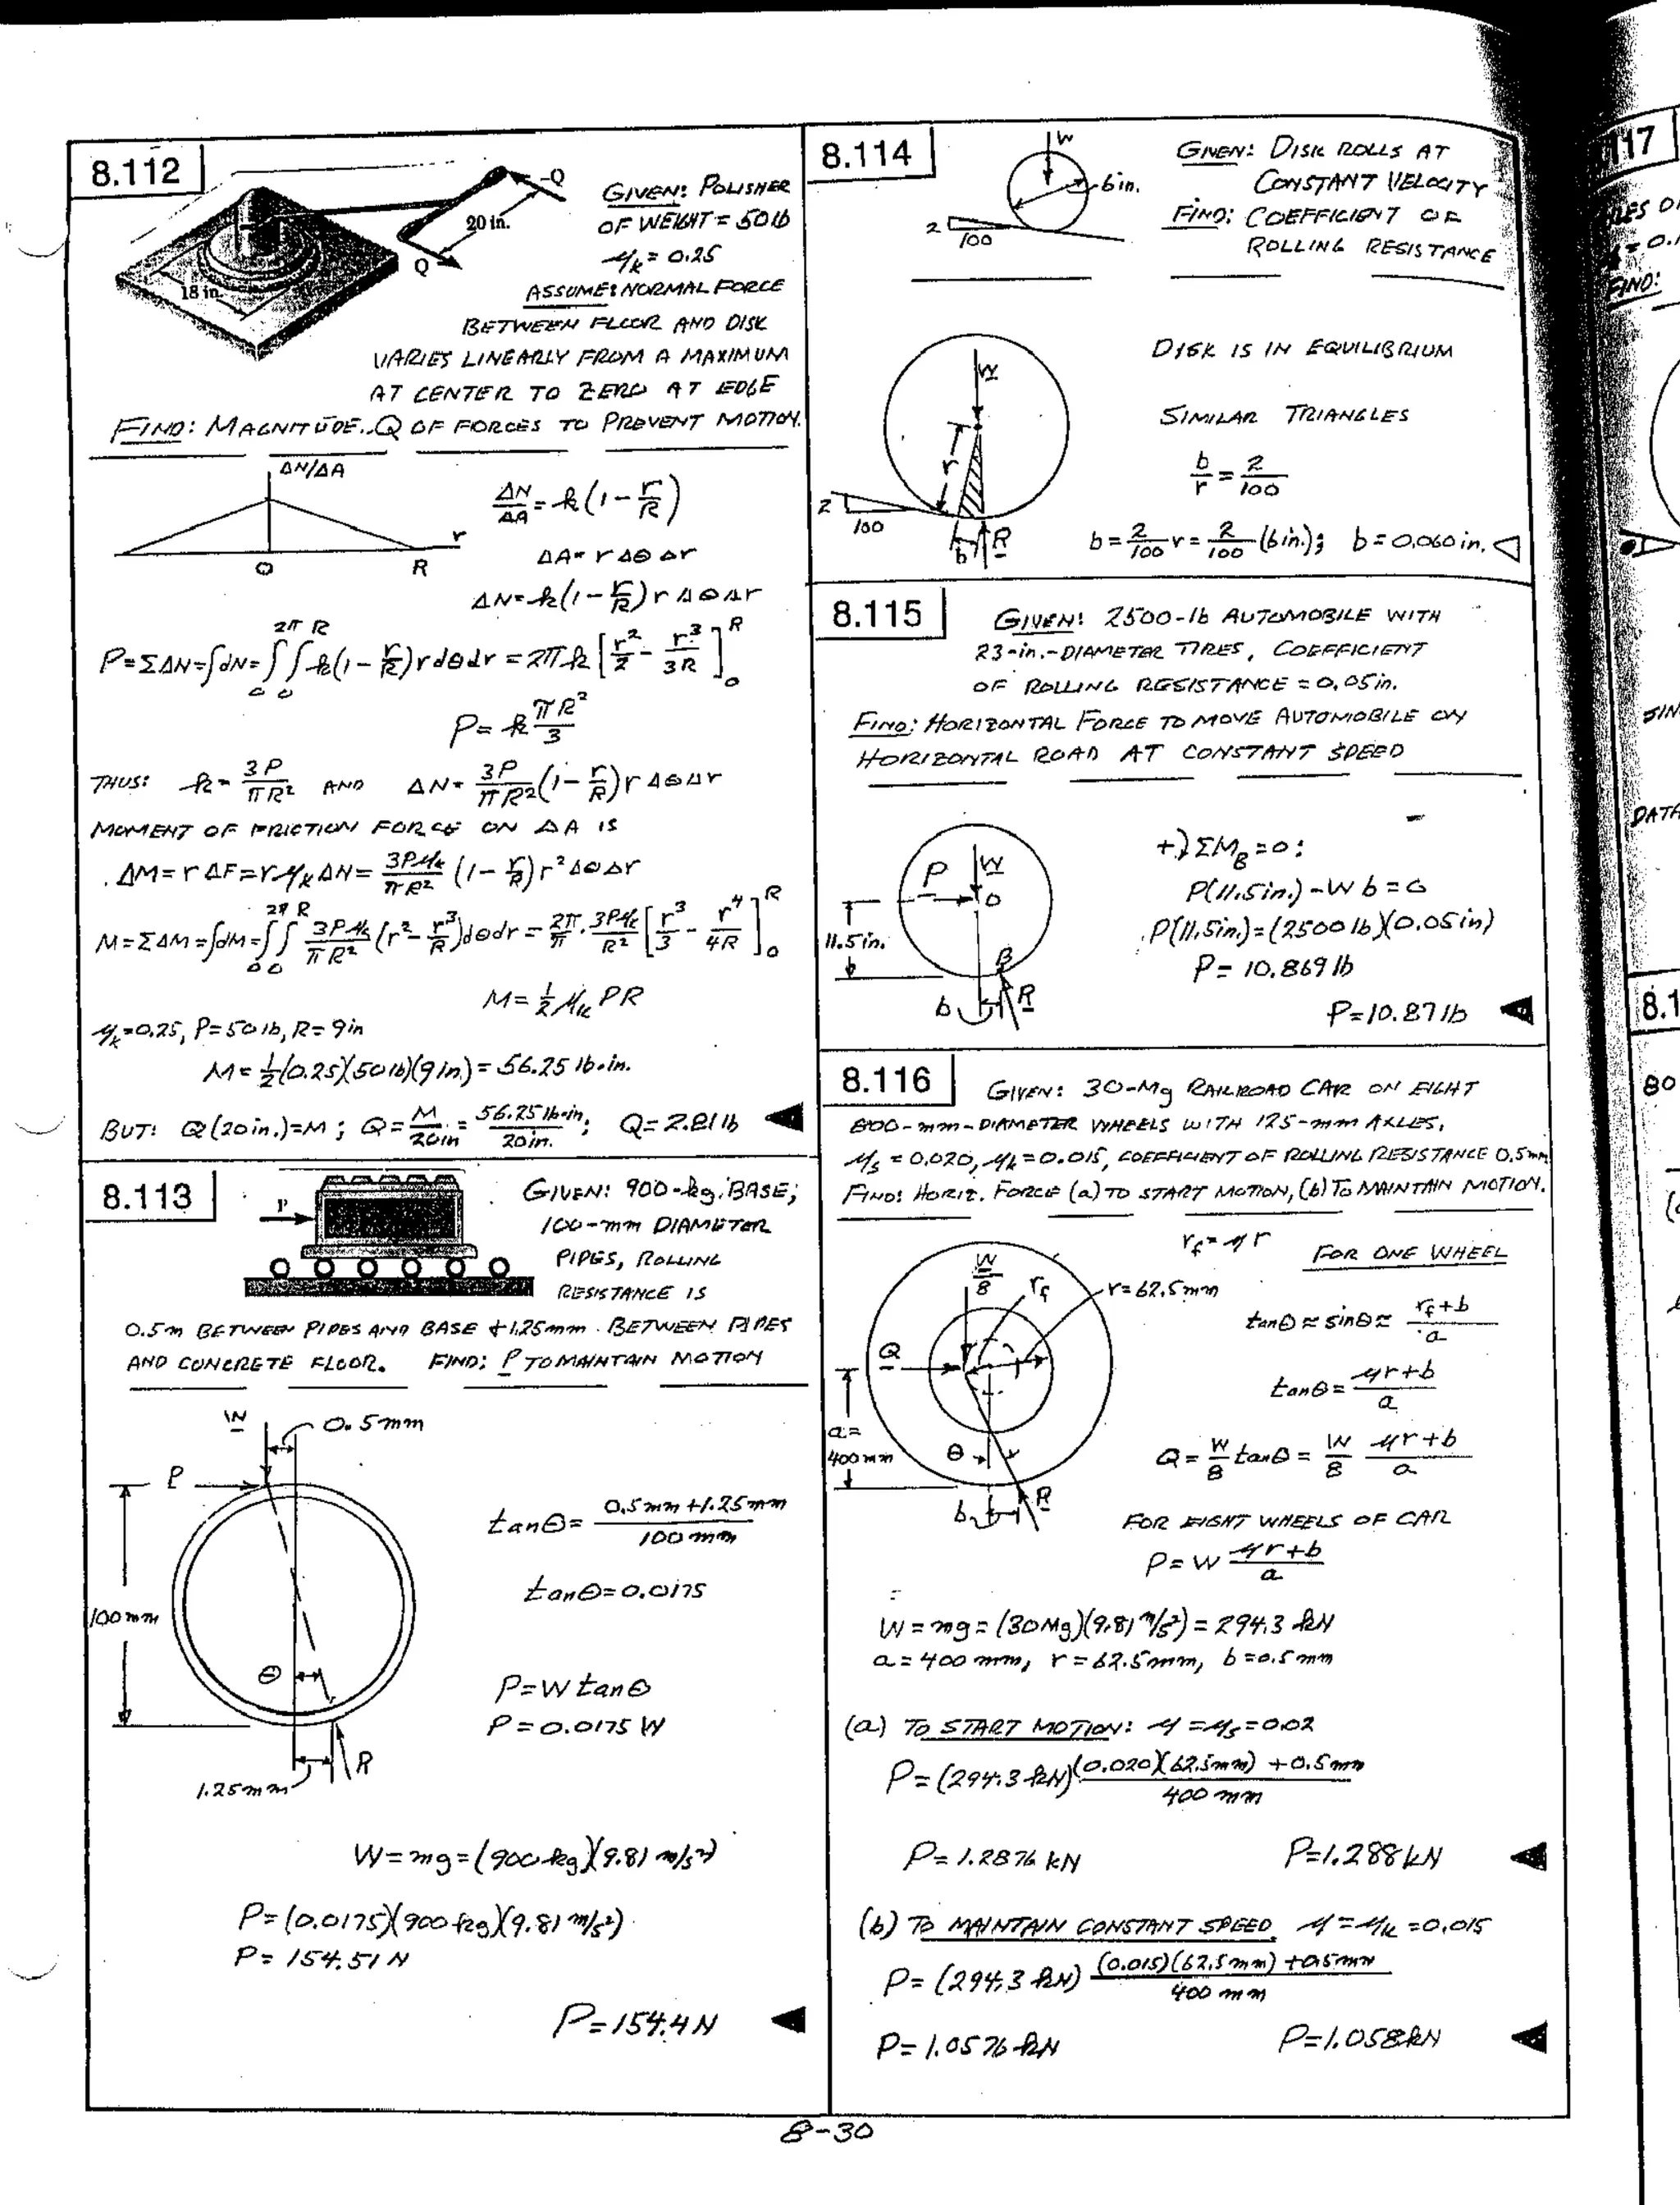 8.112
-Q
20 in.
Q
18 in.
GIVEN: POLISHER
OF WEIGHT = 50 lb
μk = 0.25
ASSUME: NORMAL FORCE
BETWEEN FLOOR AND DISK
VARIES LINEARLY FROM A MAXIMUM
AT CENTER TO ZERO AT EDGE
FIND: MAGNITUDE Q OF FORCES TO PREVENT MOTION.
ΔN/ΔA
r
O R
ΔN/ΔA = k(1 - r/R)
ΔA = r Δθ Δr
ΔN = k(1 - r/R) r Δθ Δr
P = ΣΔN = ∫dN = ∫₀^2π ∫₀^R k(1 - r/R) r dθ dr = 2πk [r²/2 - r³/3R]₀^R
P = k πR²/3
THUS: k = 3P/πR² AND ΔN = 3P/πR² (1 - r/R) r Δθ Δr
MOMENT OF FRICTION FORCE ON ΔA IS
ΔM = r ΔF = r μk ΔN = 3Pμk/πR² (1 - r/R) r² Δθ Δr
M = ΣΔM = ∫dM = ∫₀^2π ∫₀^R 3Pμk/πR² (r² - r³/R) dθ dr = 2π/π · 3Pμk/R² [r³/3 - r⁴/4R]₀^R
M = ½ μk PR
μk = 0.25, P = 50 lb, R = 9 in
M = ½(0.25)(50 lb)(9 in.) = 56.25 lb·in.
BUT: Q(20 in.) = M ; Q = M/20in = 56.25 lb·in/20 in. ; Q = 2.81 lb
8.113
P
GIVEN: 900-kg BASE;
100-mm DIAMETER
PIPES, ROLLING
RESISTANCE IS
0.5m BETWEEN PIPES AND BASE + 1.25mm BETWEEN PIPES
AND CONCRETE FLOOR. FIND: P TO MAINTAIN MOTION
W
0.5mm
P
tanθ = 0.5mm + 1.25mm/100 mm
tanθ = 0.0175
100mm
θ
P = W tanθ
P = 0.0175 W
R
1.25mm
W = mg = (900 kg)(9.81 m/s²)
P = (0.0175)(900 kg)(9.81 m/s²)
P = 154.51 N
P = 154.4 N
8.114
W
6 in.
2
100
GIVEN: DISK ROLLS AT
CONSTANT VELOCITY
FIND: COEFFICIENT OF
ROLLING RESISTANCE
W
r
2
100
b R
DISK IS IN EQUILIBRIUM
SIMILAR TRIANGLES
b/r = 2/100
b = 2/100 r = 2/100 (6 in.); b = 0.060 in.
8.115
GIVEN: 2500-lb AUTOMOBILE WITH
23-in.-DIAMETER TIRES, COEFFICIENT
OF ROLLING RESISTANCE = 0.05 in.
FIND: HORIZONTAL FORCE TO MOVE AUTOMOBILE ON
HORIZONTAL ROAD AT CONSTANT SPEED
P W
O
11.5 in.
B
b R
+) ΣM_B = 0:
P(11.5 in.) - W b = 0
P(11.5in.) = (2500 lb)(0.05 in)
P = 10.869 lb
P = 10.87 lb
8.116
GIVEN: 30-Mg RAILROAD CAR ON EIGHT
800-mm-DIAMETER WHEELS WITH 125-mm AXLES,
μs = 0.020, μk = 0.015, COEFFICIENT OF ROLLING RESISTANCE 0.5mm
FIND: HORIZ. FORCE (a) TO START MOTION, (b) TO MAINTAIN MOTION.
r_f = μ r
FOR ONE WHEEL
W/8
r_f
r = 62.5mm
Q
a =
400 mm
θ
b R
tanθ ≈ sinθ ≈ r_f + b/a
tanθ = μr + b/a
Q = W/8 tanθ = W/8 μr + b/a
FOR EIGHT WHEELS OF CAR
P = W μr + b/a
W = mg = (30 Mg)(9.81 m/s²) = 294.3 kN
a = 400 mm, r = 62.5mm, b = 0.5 mm
(a) TO START MOTION: μ = μs = 0.02
P = (294.3 kN) (0.020)(62.5mm) + 0.5 mm/400 mm
P = 1.2876 kN P = 1.288 kN
(b) TO MAINTAIN CONSTANT SPEED. μ = μk = 0.015
P = (294.3 kN) (0.015)(62.5mm) + 0.5mm/400 mm
P = 1.0576 kN P = 1.058 kN
8-30
17
FIND:
SIN
DATA
8.1
80